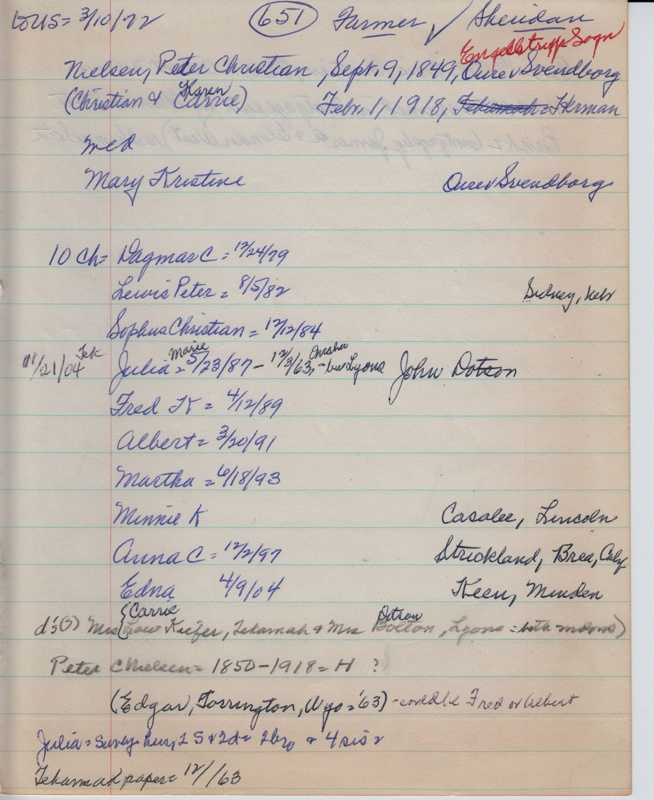 to US = 3/10/72 (651) Farmer ✓ Sheridan
Engelstrupp Sogn
Nielsen, Peter Christian, Sept. 9, 1849, Svendborg
Karen
(Christian & Carrie) Febr. 1, 1918, Tekamah Herman
med
Mary Kristine Svendborg
10 Ch = Dagmar C = 12/24/79
Lewis Peter = 8/5/82 Sidney, Nebr
Sophus Christian = 12/12/84
Tek Marie
/21/04 Julia = 5/23/87 - 12/3/63, - bur Lyons John Dotson
Fred K = 4/12/89
Albert = 3/20/91
Martha = 6/18/93
Minnie K Casalee, Lincoln
Anna C = 12/2/97 Strickland, Brea, Calif
Edna 4/9/04 Keen, Minden
Carrie Dotson
d's(?) Mrs (Low Keifer, Tekamah & Mrs Bolton, Lyons = both )
Peter C Nielsen = 1850-1918 = H ?
(Edgar, Torrington, Wyo = '63) - could be Fred or Albert
Julia = Surv = hus, 2 S & 2 d = 2 bro & 4 sis =
Tekamah paper = 12/ /63